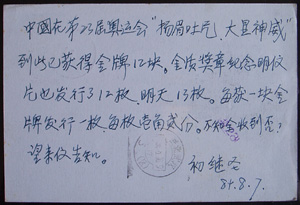 中國在第23届奧运会“扬眉吐气、大显神威”
到此已获得金牌12块。金质奬章纪念明仪
片也发行了12枚，明天13枚。每获一块金
牌发行一枚，每枚壹角贰份。不知全收到否？
望来仪告知。
初继圣
84.8.7.